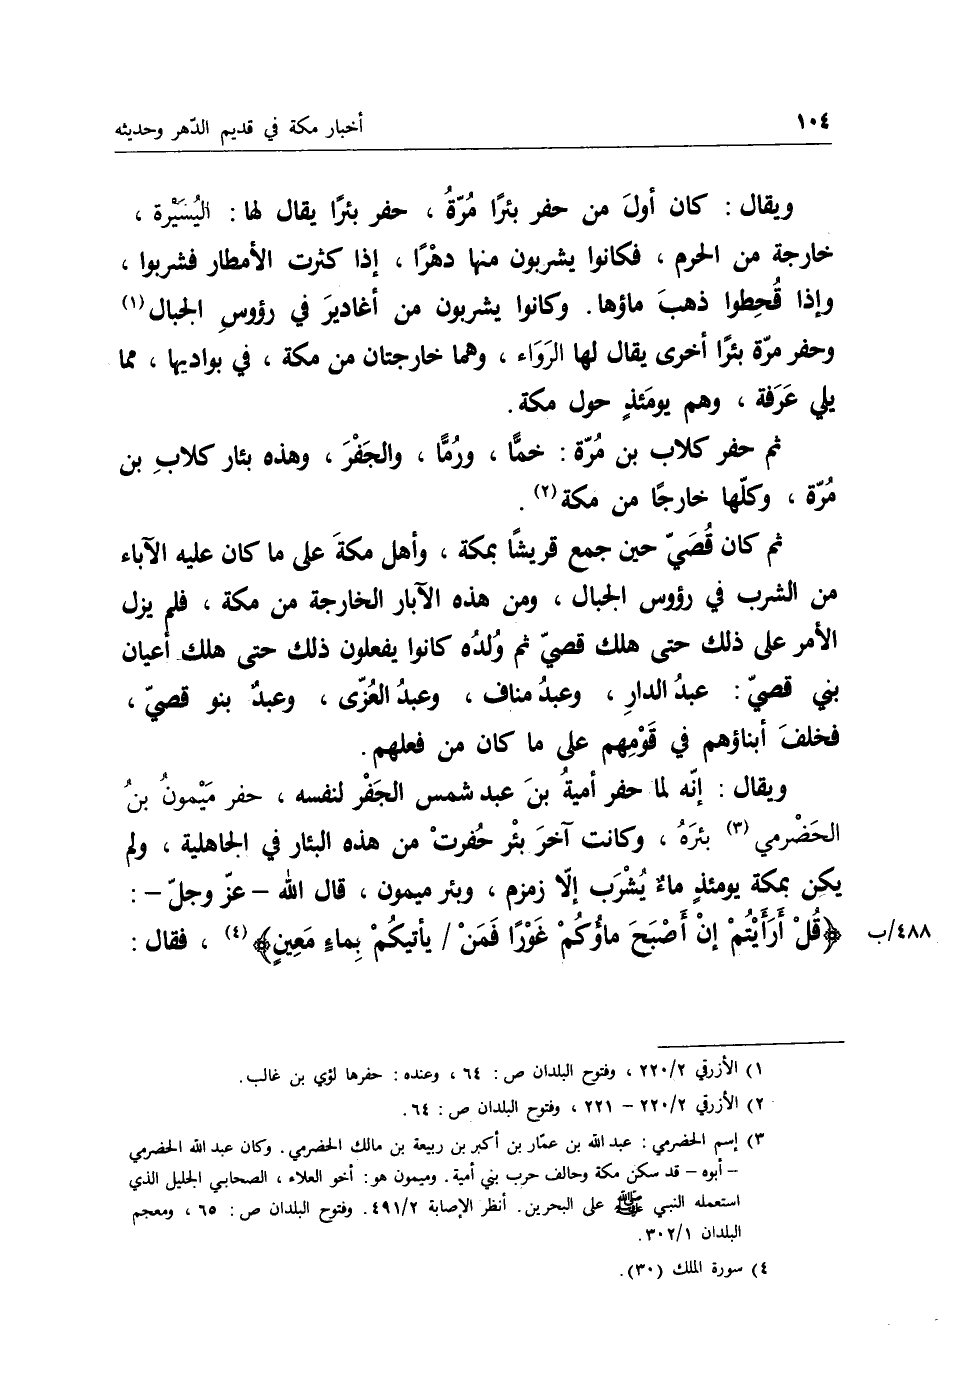 ١٠٤
أخبار مكة في قديم الدّهر وحديثه
ويقال : كان أولَ من حفر بئرًا مُرّةُ ، حفر بئرًا يقال لها : اليُسَيْرة ،
خارجة من الحرم ، فكانوا يشربون منها دهْرًا ، إذا كثرت الأمطار فشربوا ،
وإذا قُحِطوا ذهبَ ماؤها . وكانوا يشربون من أغاديرَ في رؤوسِ الجبال (١)
وحفر مرّة بئرًا أخرى يقال لها الرَوَاء ، وهما خارجتان من مكة ، في بواديها ، مما
يلي عَرَفة ، وهم يومَئذٍ حول مكة .
ثم حفر كلاب بن مُرّة : خمًّا ، ورُمًّا ، والجَفْرَ ، وهذه بئار كلابِ بن
مُرّة ، وكلّها خارجًا من مكة (٢) .
ثم كان قُصَيّ حين جمع قريشًا بمكة ، وأهل مكةَ على ما كان عليه الآباء
من الشرب في رؤوس الجبال ، ومن هذه الآبار الخارجة من مكة ، فلم يزل
الأمر على ذلك حتى هلك قصيّ ثم وُلدُه كانوا يفعلون ذلك حتى هلك أعيان
بني قصيّ : عبدُ الدارِ ، وعبدُ مناف ، وعبدُ العُزّى ، وعبدٌ بنو قصيّ ،
فخلفَ أبناؤهم في قَوْمِهم على ما كان من فعلهم .
ويقال : إنّه لما حفر أميةُ بنَ عبد شمس الجَفْر لنفسه ، حفر مَيْمونُ بنُ
الحَضْرمي (٣) بئرَهُ ، وكانت آخرَ بئْر حُفرتْ من هذه البئار في الجاهلية ، ولم
يكن بمكة يومئذٍ ماءٌ يُشْرَب إلّا زمزم ، وبئر ميمون ، قال الله – عزّ وجلّ – :
﴿قُلْ أَرَأَيْتُمْ إنْ أَصْبَحَ ماؤُكُمْ غَوْرًا فَمَنْ / يأتيكُمْ بِماءٍ مَعِينٍ﴾ (٤) ، فقال :
٤٨٨/ب
١) الأزرقي ٢٢٠/٢ ، وفتوح البلدان ص : ٦٤ ، وعنده : حفرها لؤي بن غالب .
٢) الأزرقي ٢٢٠/٢ – ٢٢١ ، وفتوح البلدان ص : ٦٤ .
٣) إسم الحضرمي : عبد الله بن عمّار بن أكبر بن ربيعة بن مالك الحضرمي . وكان عبد الله الحضرمي
– أبوه – قد سكن مكة وحالف حرب بني أمية . وميمون هو : أخو العلاء ، الصحابي الجليل الذي
استعمله النبي ﷺ على البحرين . أنظر الإصابة ٤٩١/٢ . وفتوح البلدان ص : ٦٥ ، ومعجم
البلدان ٣٠٢/١ .
٤) سورة الملك (٣٠) .